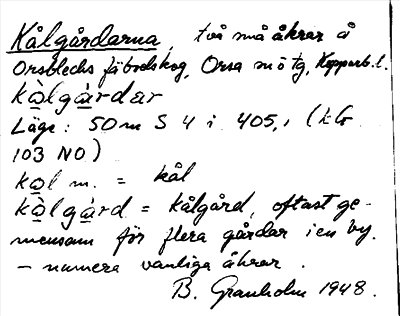 Kålgårdarna, två små åkrar å
Orsblecks fäbodskog, Orsa mötg, Kopparb. l.
kålgårdar
Läge: 50 m S 4 i 405,1 (kb
103 NO)
kol m. = kål
kålgård = kålgård, oftast ge-
mensam för flera gårdar i en by.
– numera vanliga åkrar.
B. Granholm 1948.